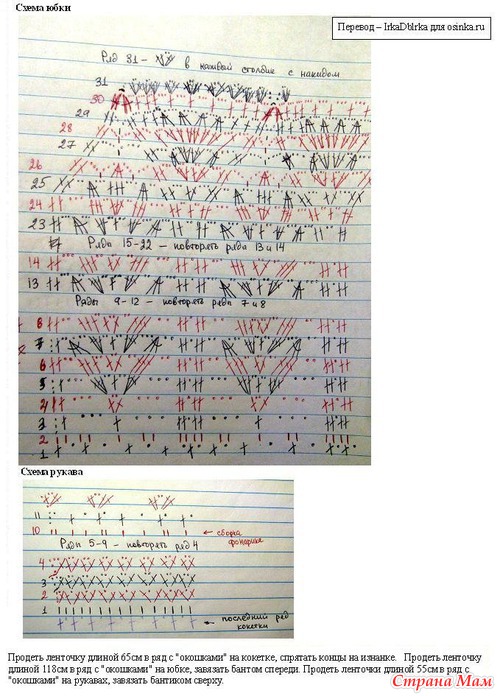 Схема юбки
Перевод – IrkaDblrka для osinka.ru
Ряд 31 - в каждый столбик с накидом
31
30
29
28
27
26
25
24
23
Ряды 15-22 - повторять ряды 13 и 14
14
13
Ряды 9-12 - повторять ряды 7 и 8
6
7
6
5
4
3
2
1
Схема рукава
11
10
сборка фонарика
Ряды 5-9 - повторять ряд 4
4
3
2
1
последний ряд кокетки
Продеть ленточку длиной 65см в ряд с "окошками" на кокетке, спрятать концы на изнанке. Продеть ленточку
длиной 118см в ряд с "окошками" на юбке, завязать бантом спереди. Продеть ленточки длиной 55см в ряд с
"окошками" на рукавах, завязать бантиком сверху.
Страна Мам